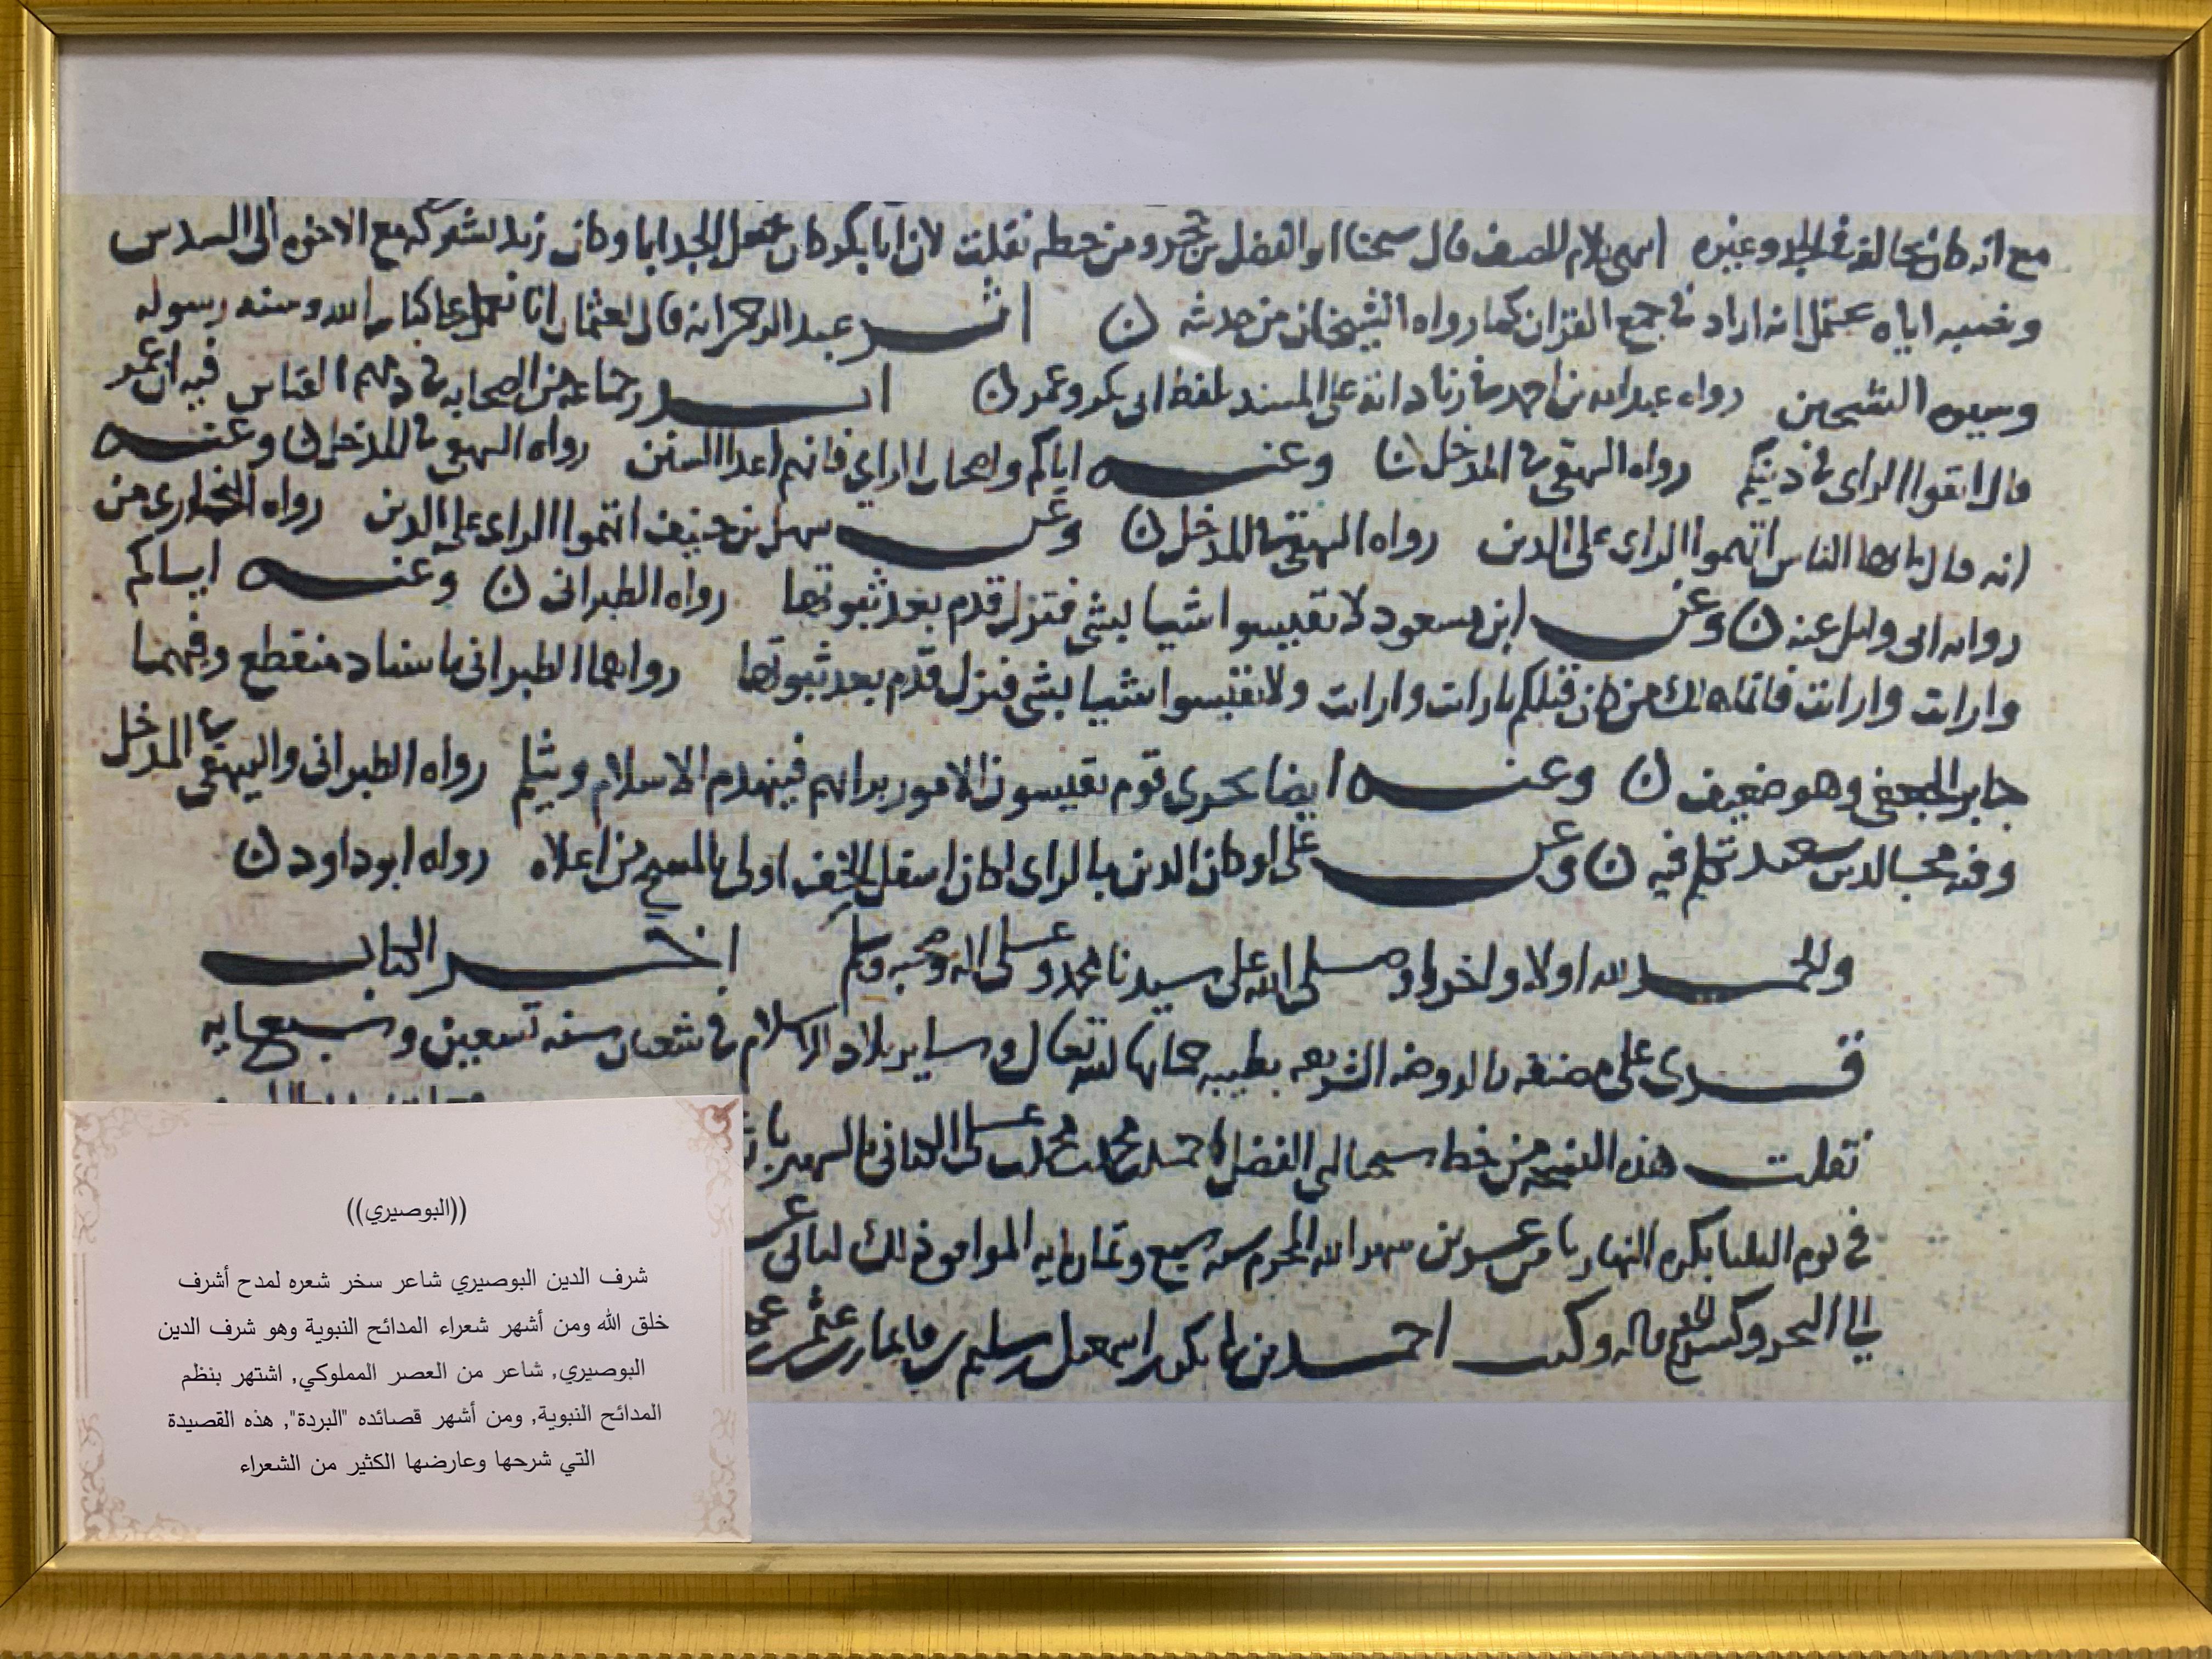 مع انه كان يخالفه في الجد وغيره انتهى كلام المصنف قال شيخنا ابو الفضل بن حجر ومن خطه نقلت لان ابا بكر كان يجعل الجد ابا وكان زيد يشركه مع الاخوه الى السدس
ونصبه اياه يحتمل انه اراد في جمع القران كما رواه الشيخان من حديثه ن اثر عبد الرحمن انه قال لعثمان انا نعمل على كتاب الله وسنه رسوله
وسيره الشيخين رواه عبد الله بن احمد في زياداته على المسند بلفظ ابى بكر وعمر ن جماعه من الصحابه في ذمهم القياس فيه ان عمر
قال اتقوا الراى في دينكم رواه البيهقى في المدخل ن وعنه اياكم واصحاب الراي فانهم اعدا السنن رواه البيهقى في المدخل ن وعنه
انه قال يا ايها الناس اتهموا الراى على الدين رواه البيهقى في المدخل ن وعن سهل بن حنيف اتهموا الراى على الدين رواه البخارى من
روايه ابى وايل عنه ن وعن ابن مسعود لا تقيسوا شيا بشى فتزل قدم بعد ثبوتها رواه الطبرانى ن وعنه اياكم
وارايت وارايت فانما هلك من كان قبلكم بارايت وارايت ولا تقيسوا شيا بشى فتزل قدم بعد ثبوتها رواهما الطبرانى باسناد منقطع وفيهما
جابر الجعفى وهو ضعيف ن وعنه ايضا قوم يقيسون الامور برايهم فينهدم الاسلام ويثلم رواه الطبرانى والبيهقى في المدخل
وفيه مجالد بن سعيد تكلم فيه ن وعن على لو كان الدين بالراى لكان اسفل الخف اولى بالمسح من اعلاه رواه ابو داود ن
والحمد لله اولا واخرا وصلى الله على سيدنا محمد وعلى اله وصحبه وسلم اخر الكتاب
قرى على مصنفه بالروضه الشريفه بطيبه حماها الله تعالى وساير بلاد الاسلام في شعبان سنه تسعين وسبعمايه
نقلت هذه النسخه من خط شيخنا ابى الفضل احمد بن محمد بن محمد بن على
في يوم الثلثا بكره النهار شهر الله المحرم سنه سبع وثمان مايه الموافق ذلك
احمد بن ابى بكر بن اسمعيل بن سليم بن قايماز بن عثمن بن عمر
((البوصيري))
شرف الدين البوصيري شاعر سخر شعره لمدح أشرف
خلق الله ومن أشهر شعراء المدائح النبوية وهو شرف الدين
البوصيري, شاعر من العصر المملوكي, اشتهر بنظم
المدائح النبوية, ومن أشهر قصائده "البردة", هذه القصيدة
التي شرحها وعارضها الكثير من الشعراء